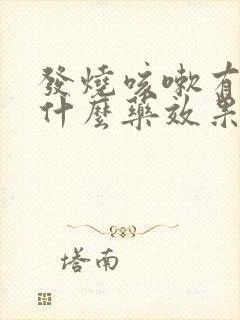 發燒咳嗽有
什麼藥效果
塔南